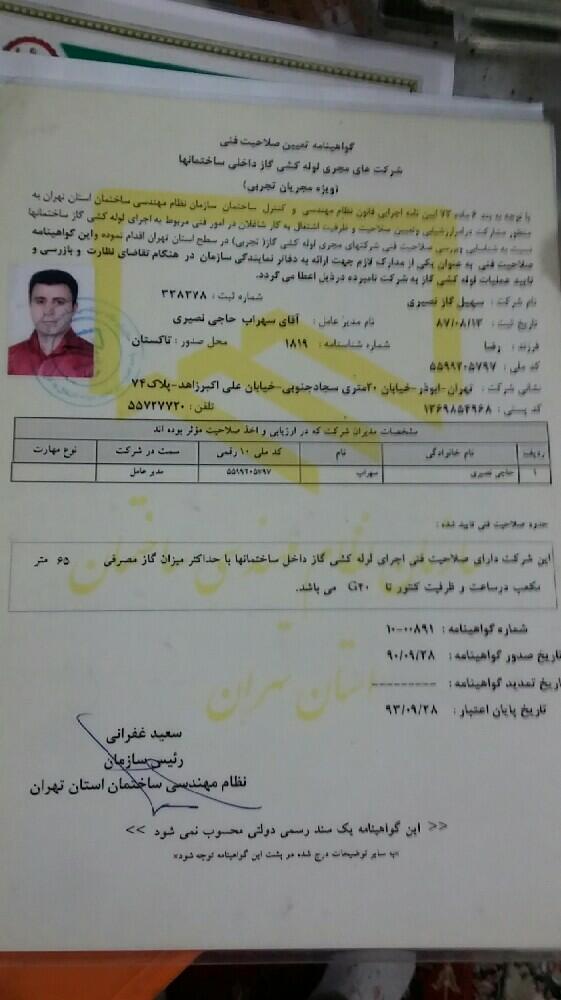 گواهینامه تعیین صلاحیت فنی
شرکت های مجری لوله کشی گاز داخلی ساختمانها
(ویژه مجریان تجربی)
با توجه به بند ۶ ماده ۷۳ آیین نامه اجرایی قانون نظام مهندسی و کنترل ساختمان سازمان نظام مهندسی ساختمان استان تهران به
منظور مشارکت در امر ارزشیابی و تعیین صلاحیت و ظرفیت اشتغال به کار شاغلان در امور فنی مربوط به اجرای لوله کشی گاز ساختمانها
نسبت به شناسایی و بررسی صلاحیت فنی شرکتهای مجری لوله کشی گاز( تجربی) در سطح استان تهران اقدام نموده و این گواهینامه
صلاحیت فنی به عنوان یکی از مدارک لازم جهت ارائه به دفاتر نمایندگی سازمان در هنگام تقاضای نظارت و بازرسی و
تایید عملیات لوله کشی گاز به شرکت نامبرده در ذیل اعطا می گردد.
نام شرکت : سهیل گاز نصیری شماره ثبت : ۳۳۸۳۷۸
تاریخ ثبت : ۸۷/۰۸/۱۳ نام مدیر عامل : آقای سهراب حاجی نصیری
فرزند : رضا شماره شناسنامه : ۱۸۱۹ محل صدور : تاکستان
کد ملی :
نشانی شرکت : تهران-ابوذر-خیابان ۲۰متری سجادجنوبی-خیابان علی اکبرزاهد-پلاک۷۴
کد پستی : ۱۳۶۹۸۵۴۹۶۸ تلفن : ۵۵۷۲۷۷۲۰
مشخصات مدیران شرکت که در ارزیابی و اخذ صلاحیت مؤثر بوده اند
ردیف نام خانوادگی نام کد ملی ۱۰ رقمی سمت در شرکت نوع مهارت
۱ حاجی نصیری سهراب مدیر عامل
حدوده صلاحیت فنی تایید شده :
این شرکت دارای صلاحیت فنی اجرای لوله کشی گاز داخل ساختمانها با حداکثر میزان گاز مصرفی ۶۵ متر
مکعب درساعت و ظرفیت کنتور تا G۴۰ می باشد.
شماره گواهینامه : ۱۰-۰۰۸۹۱
تاریخ صدور گواهینامه : ۹۰/۰۹/۲۸
تاریخ تمدید گواهینامه : ---------
تاریخ پایان اعتبار : ۹۳/۰۹/۲۸
سازمان نظام مهندسی ساختمان
استان تهران
سعید غفرانی
رئیس سازمان
نظام مهندسی ساختمان استان تهران
<< این گواهینامه یک سند رسمی دولتی محسوب نمی شود >>
«به سایر توضیحات درج شده در پشت این گواهینامه توجه شود»